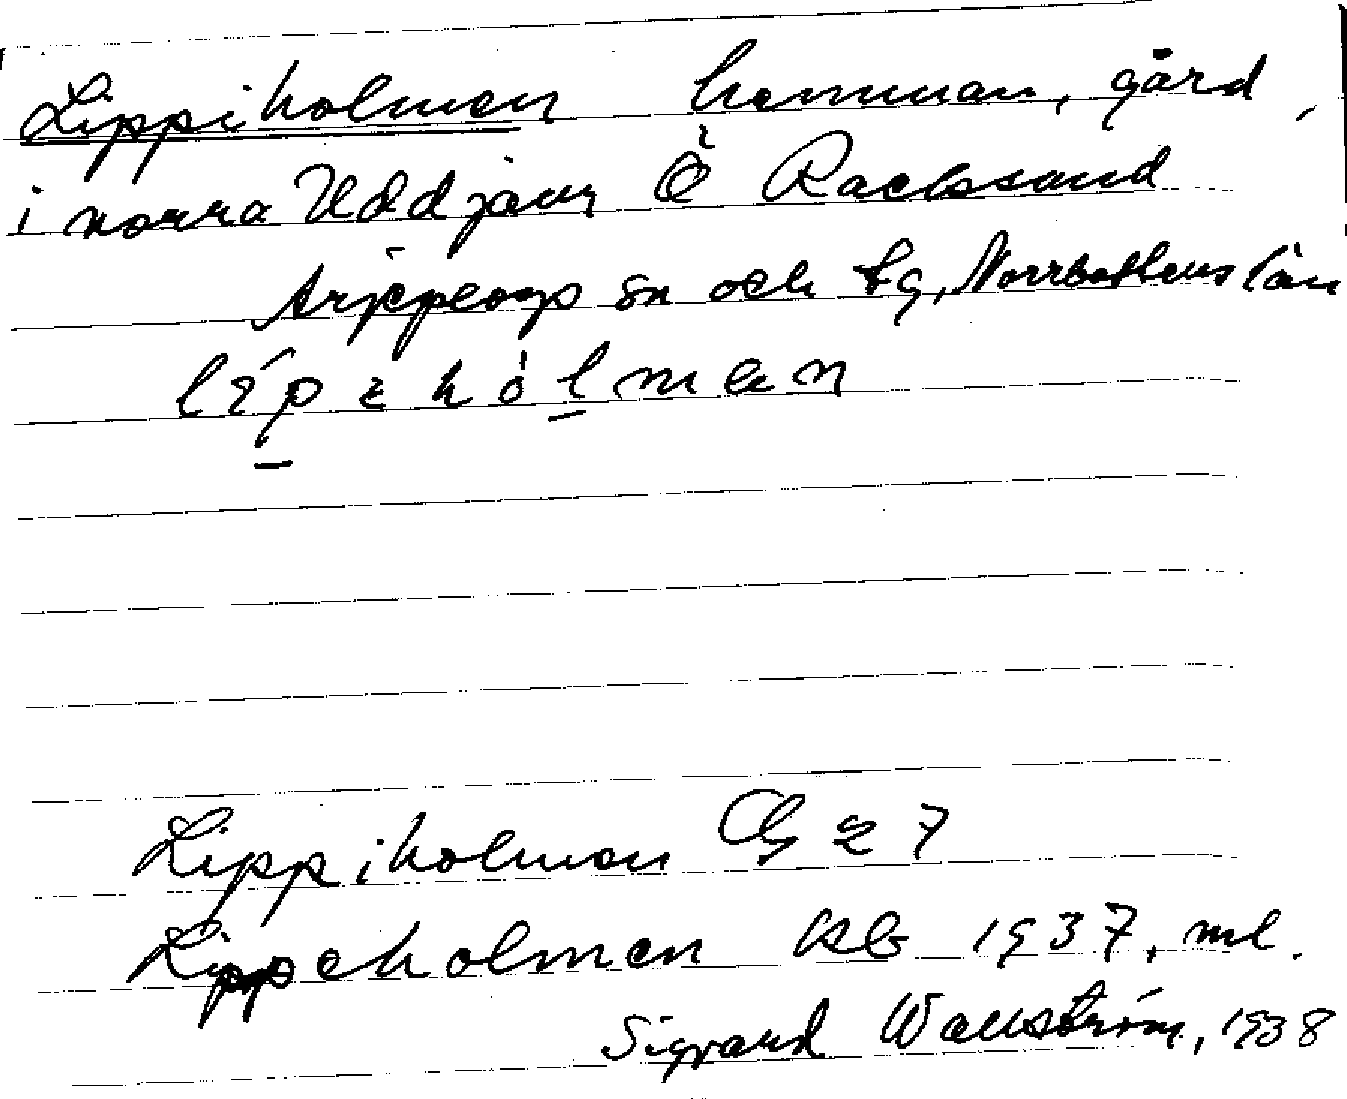 Lippiholmen hemman, gård,
i norra Uddjaur Ö Racksund
Arjeplogs sn och tg, Norrbottens län
Lippiholmen
Lippeholmen kb 1937, ml.
Sigvard Wallström, 1938